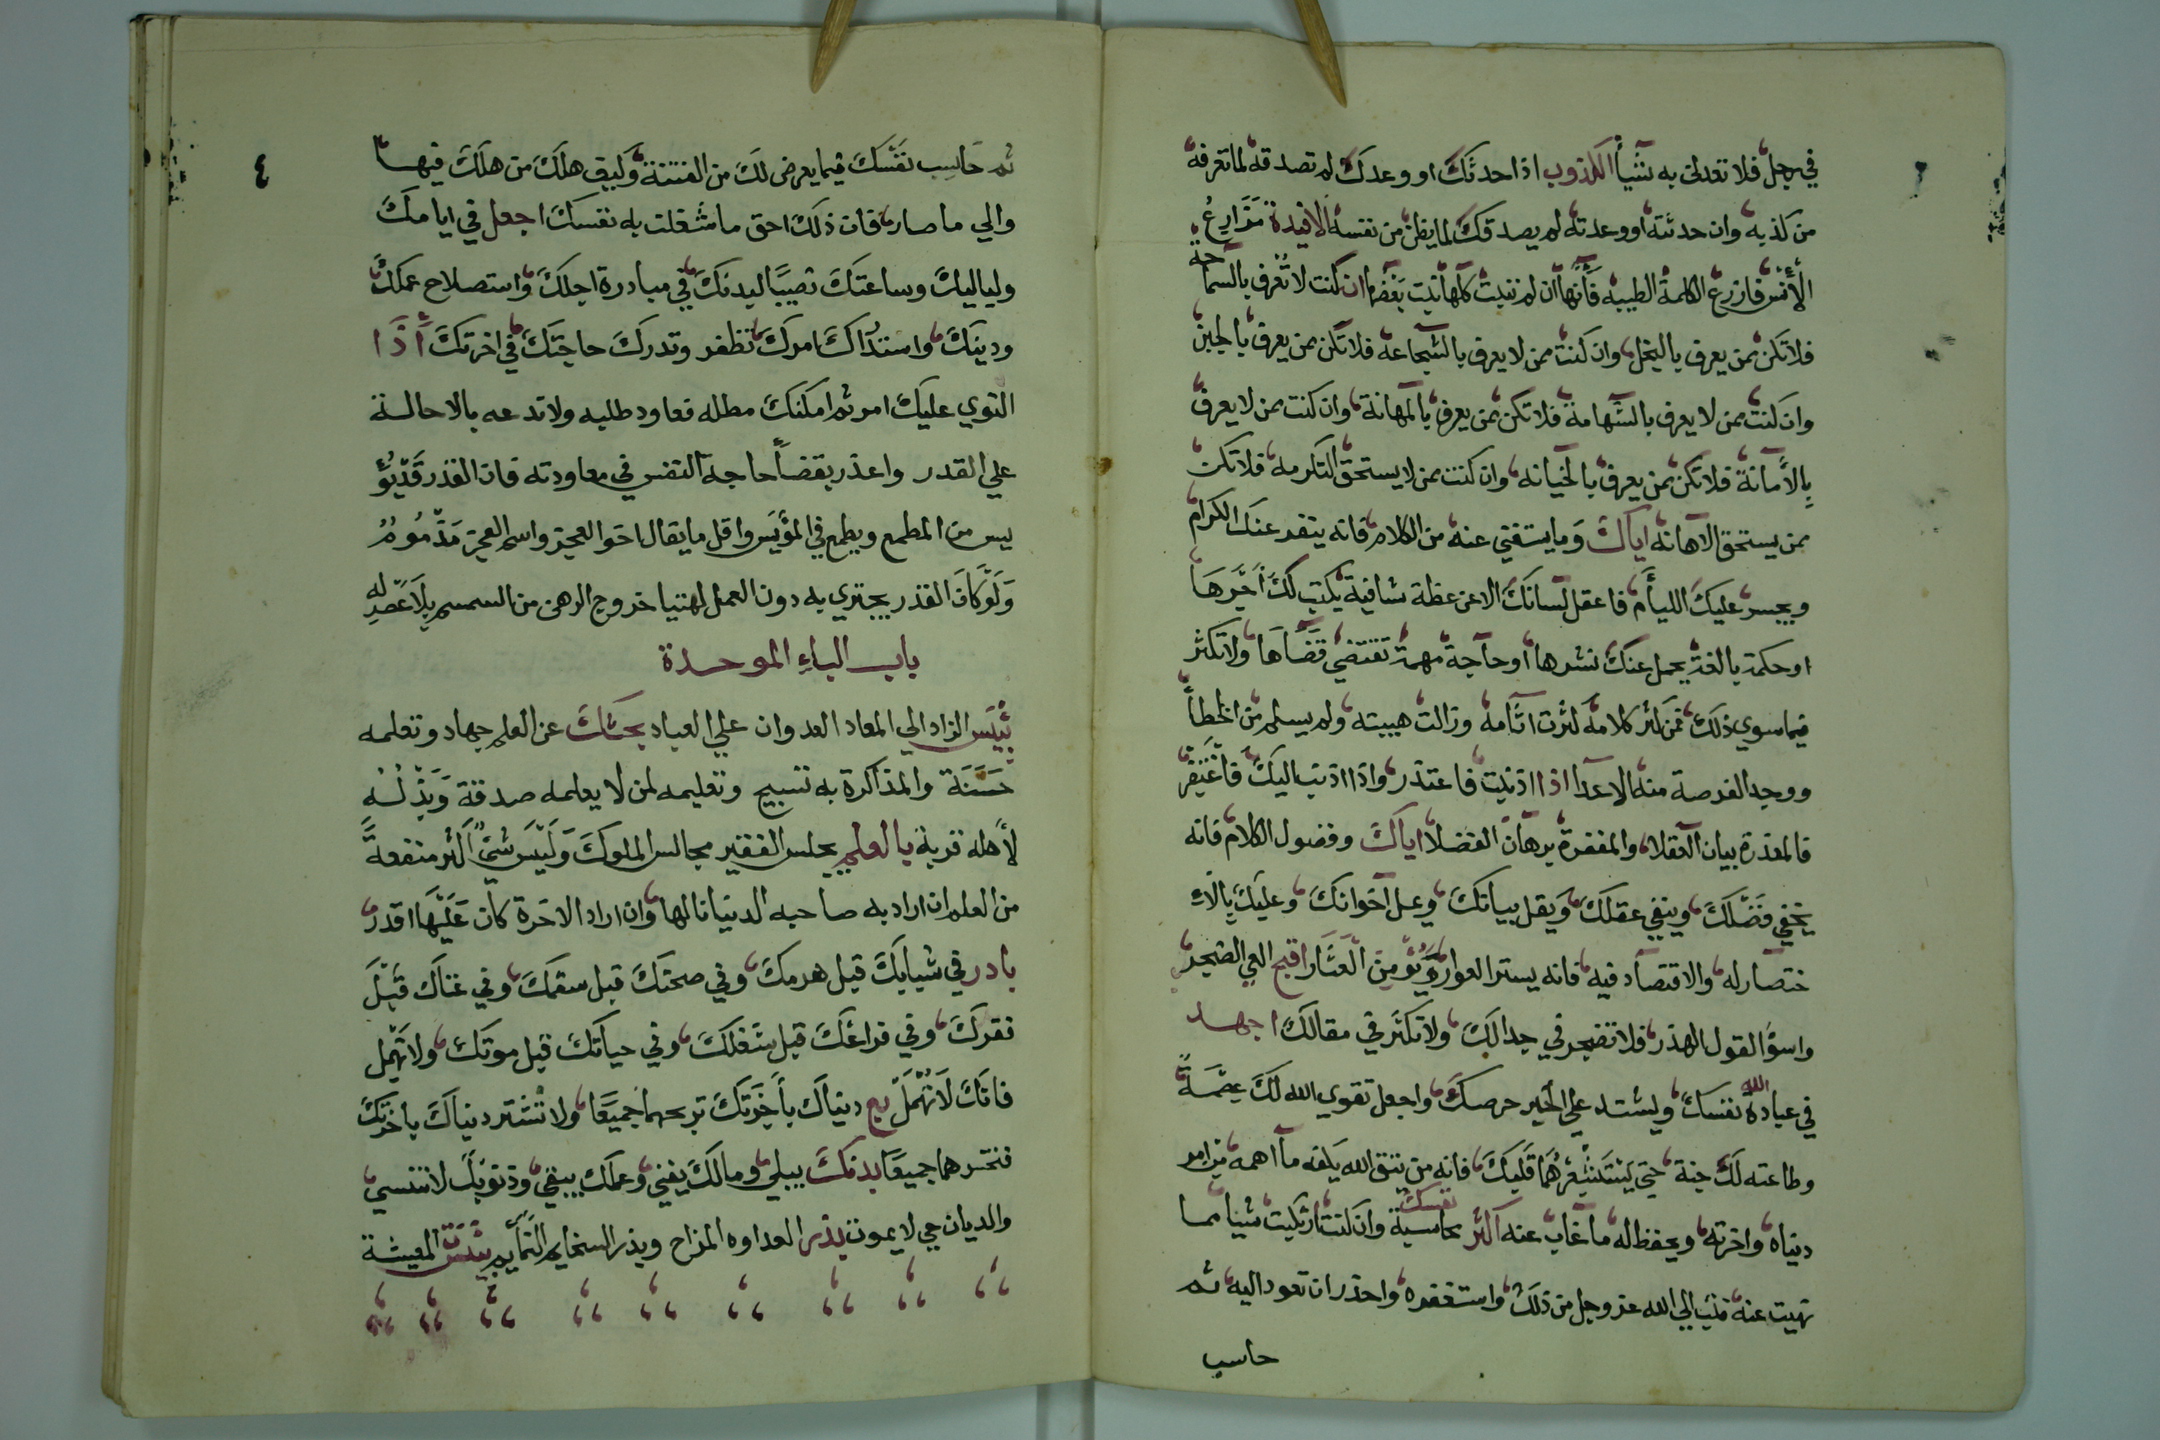 في رجل فلا تعدلن به شيأ الكذوب اذا حدثك او وعدك لم تصدقه لما تعرفه
من كذبه وان حدثته او وعدته لم يصدقك لما يظن من نفسه الافيدة مزارع
الأنس فازرع الكلمة الطيبه فانها ان لم تنبت كلها نبت بعضها ان كنت لا تعرف بالسماحة
فلا تكن ممن يعرف بالبخل وان كنت ممن لا يعرف بالشجاعه فلا تكن ممن يعرف بالجبن
وان كنت ممن لا يعرف بالشهامة فلا تكن ممن يعرف بالمهانة وان كنت ممن لا يعرف
بالأمانة فلا تكن ممن يعرف بالخيانه وان كنت ممن لا يستحق التكرمه فلا تكن
ممن يستحق الاهانه اياك وما يستغني عنه من الكلام فانه ينفر عنك الكرام
ويجسر عليك الليأم فاعقل لسانك الا عن عظة شافية يكتب لك اجرها
او حكمة بالغة يحمل عنك نشرها او حاجة مهمة تقتضي قضاها ولا تكثر
فيما سوي ذلك فمن كثر كلامه كثرت اثامه وزالت هيبته ولم يسلم من الخطأ
ووجد الفرصة منه الاعدا اذا اذنبت فاعتذر واذا اذنب اليك فاغتفر
فالمعذرة بيان العقلا والمغفرة برهان الفضلا اياك وفضول الكلام فانه
يخفي فضلك وينفي عقلك ويقل بيانك ويمل اخوانك وعليك بالا
ختصار له والاقتصاد فيه فانه يستر العوار ويؤمن العثار اقبح العي الضجر
واسؤ القول الهذر فلا تضجر في جدالك ولا تكثر في مقالك اجهد
في عبادة الله نفسك وليشتد علي الخير حرصك واجعل تقوي الله لك عصمة
وطاعته لك جنة حتي يستشعرهما قلبك فانه من يتق الله يكفه ما اهمه من امر
دنياه واخرته ويحفظ له ما غاب عنه اكثر محاسبة نفسك وان كنت ارتكبت شيئا مما
نهيت عنه فتب الي الله عز وجل من ذلك واستغفره واحذر ان تعود اليه ثم
حاسب
٤
ثم حاسب نفسك فيما يعرض لك من الفتنة وكيف هلك من هلك فيها
والي ما صار فان ذلك احق ما شغلت به نفسك اجعل في ايامك
ولياليك وساعتك نصيبا لبدنك في مبادرة اجلك واستصلاح عملك
ودينك واستدراك امرك تظفر وتدرك حاجتك في اخرتك أذا
التوي عليك امر ثم امكنك مطله فعاود طلبه ولا تدعه بالاحالة
علي القدر واعذر بقضأ حاجة النفس في معاودته فان القدر قد يؤ
يس من المطمع ويطمع في المؤيس واقل ما يقال اخو العجز واسم العجز مذموم
ولو كان القدر يجتري به دون العمل لهنيا خروج الدهن من السمسم بلا عصر له
باب الباء الموحدة
بئيس الزاد الي المعاد العدوان علي العباد بحثك عن العلم جهاد وتعلمه
حسنة والمذاكرة به تسبيح وتعليمه لمن لا يعلمه صدقة وبذله
لأهله قربة بالعلم يجلس الفقير مجالس الملوك وليس شيء اكثر منفعة
من العلم ان اراد به صاحبه الدنيا نالها وان اراد الاخرة كان عليها اقدر
بادر في شبابك قبل هرمك وفي صحتك قبل سقمك وفي غناك قبل
فقرك وفي فراغك قبل شغلك وفي حياتك قبل موتك ولا تهمل
فانك لا تهمل بع دنياك بأخرتك تربحهما جميعا ولا تشتر دنياك باخرتك
فتخسرهما جميعا بدنك يبلي ومالك يفني وعملك يبقي وذنوبك لا تنسي
والديان حي لا يموت بذر العداوه المزاح وبذر السخايم النمأيم بئست المعيشة